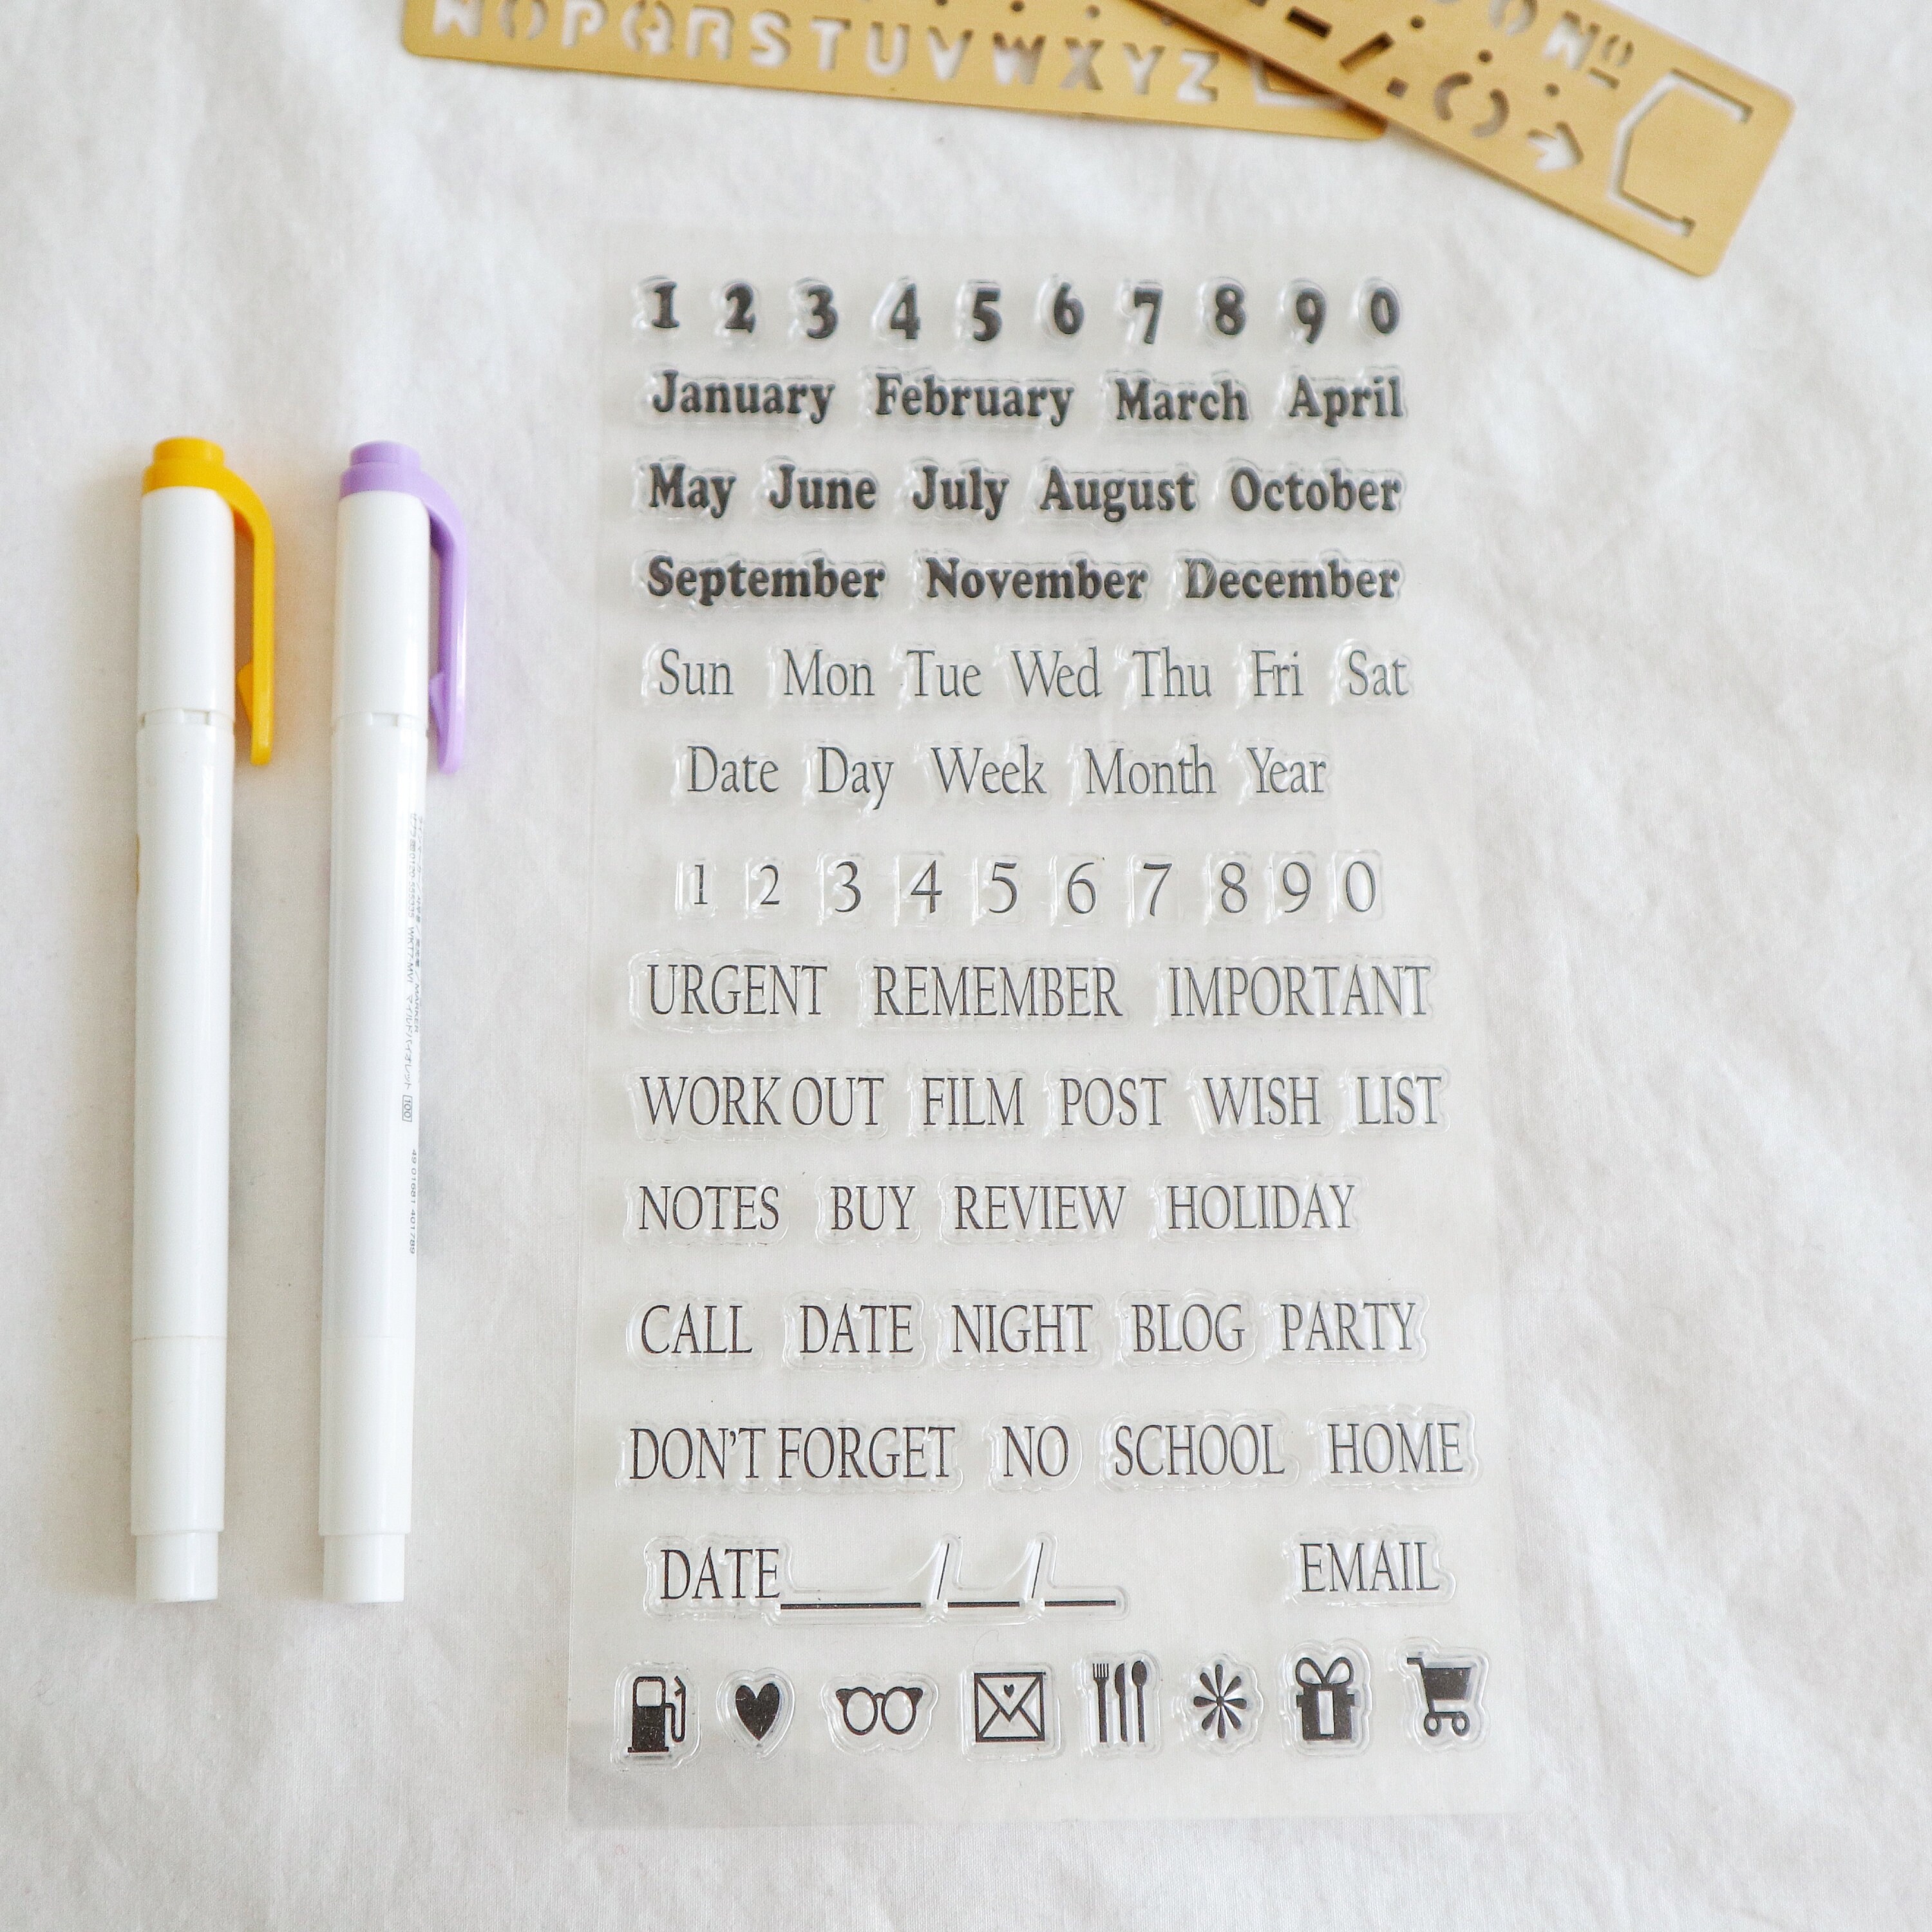 N O P Q R S T U V W X Y Z
Nº
1 2 3 4 5 6 7 8 9 0
January February March April
May June July August October
September November December
Sun Mon Tue Wed Thu Fri Sat
Date Day Week Month Year
1 2 3 4 5 6 7 8 9 0
URGENT REMEMBER IMPORTANT
WORK OUT FILM POST WISH LIST
NOTES BUY REVIEW HOLIDAY
CALL DATE NIGHT BLOG PARTY
DON'T FORGET NO SCHOOL HOME
DATE____/__/__ EMAIL
MARKER WKT7-MVI マイルドバイオレット 100
49 01681 401789